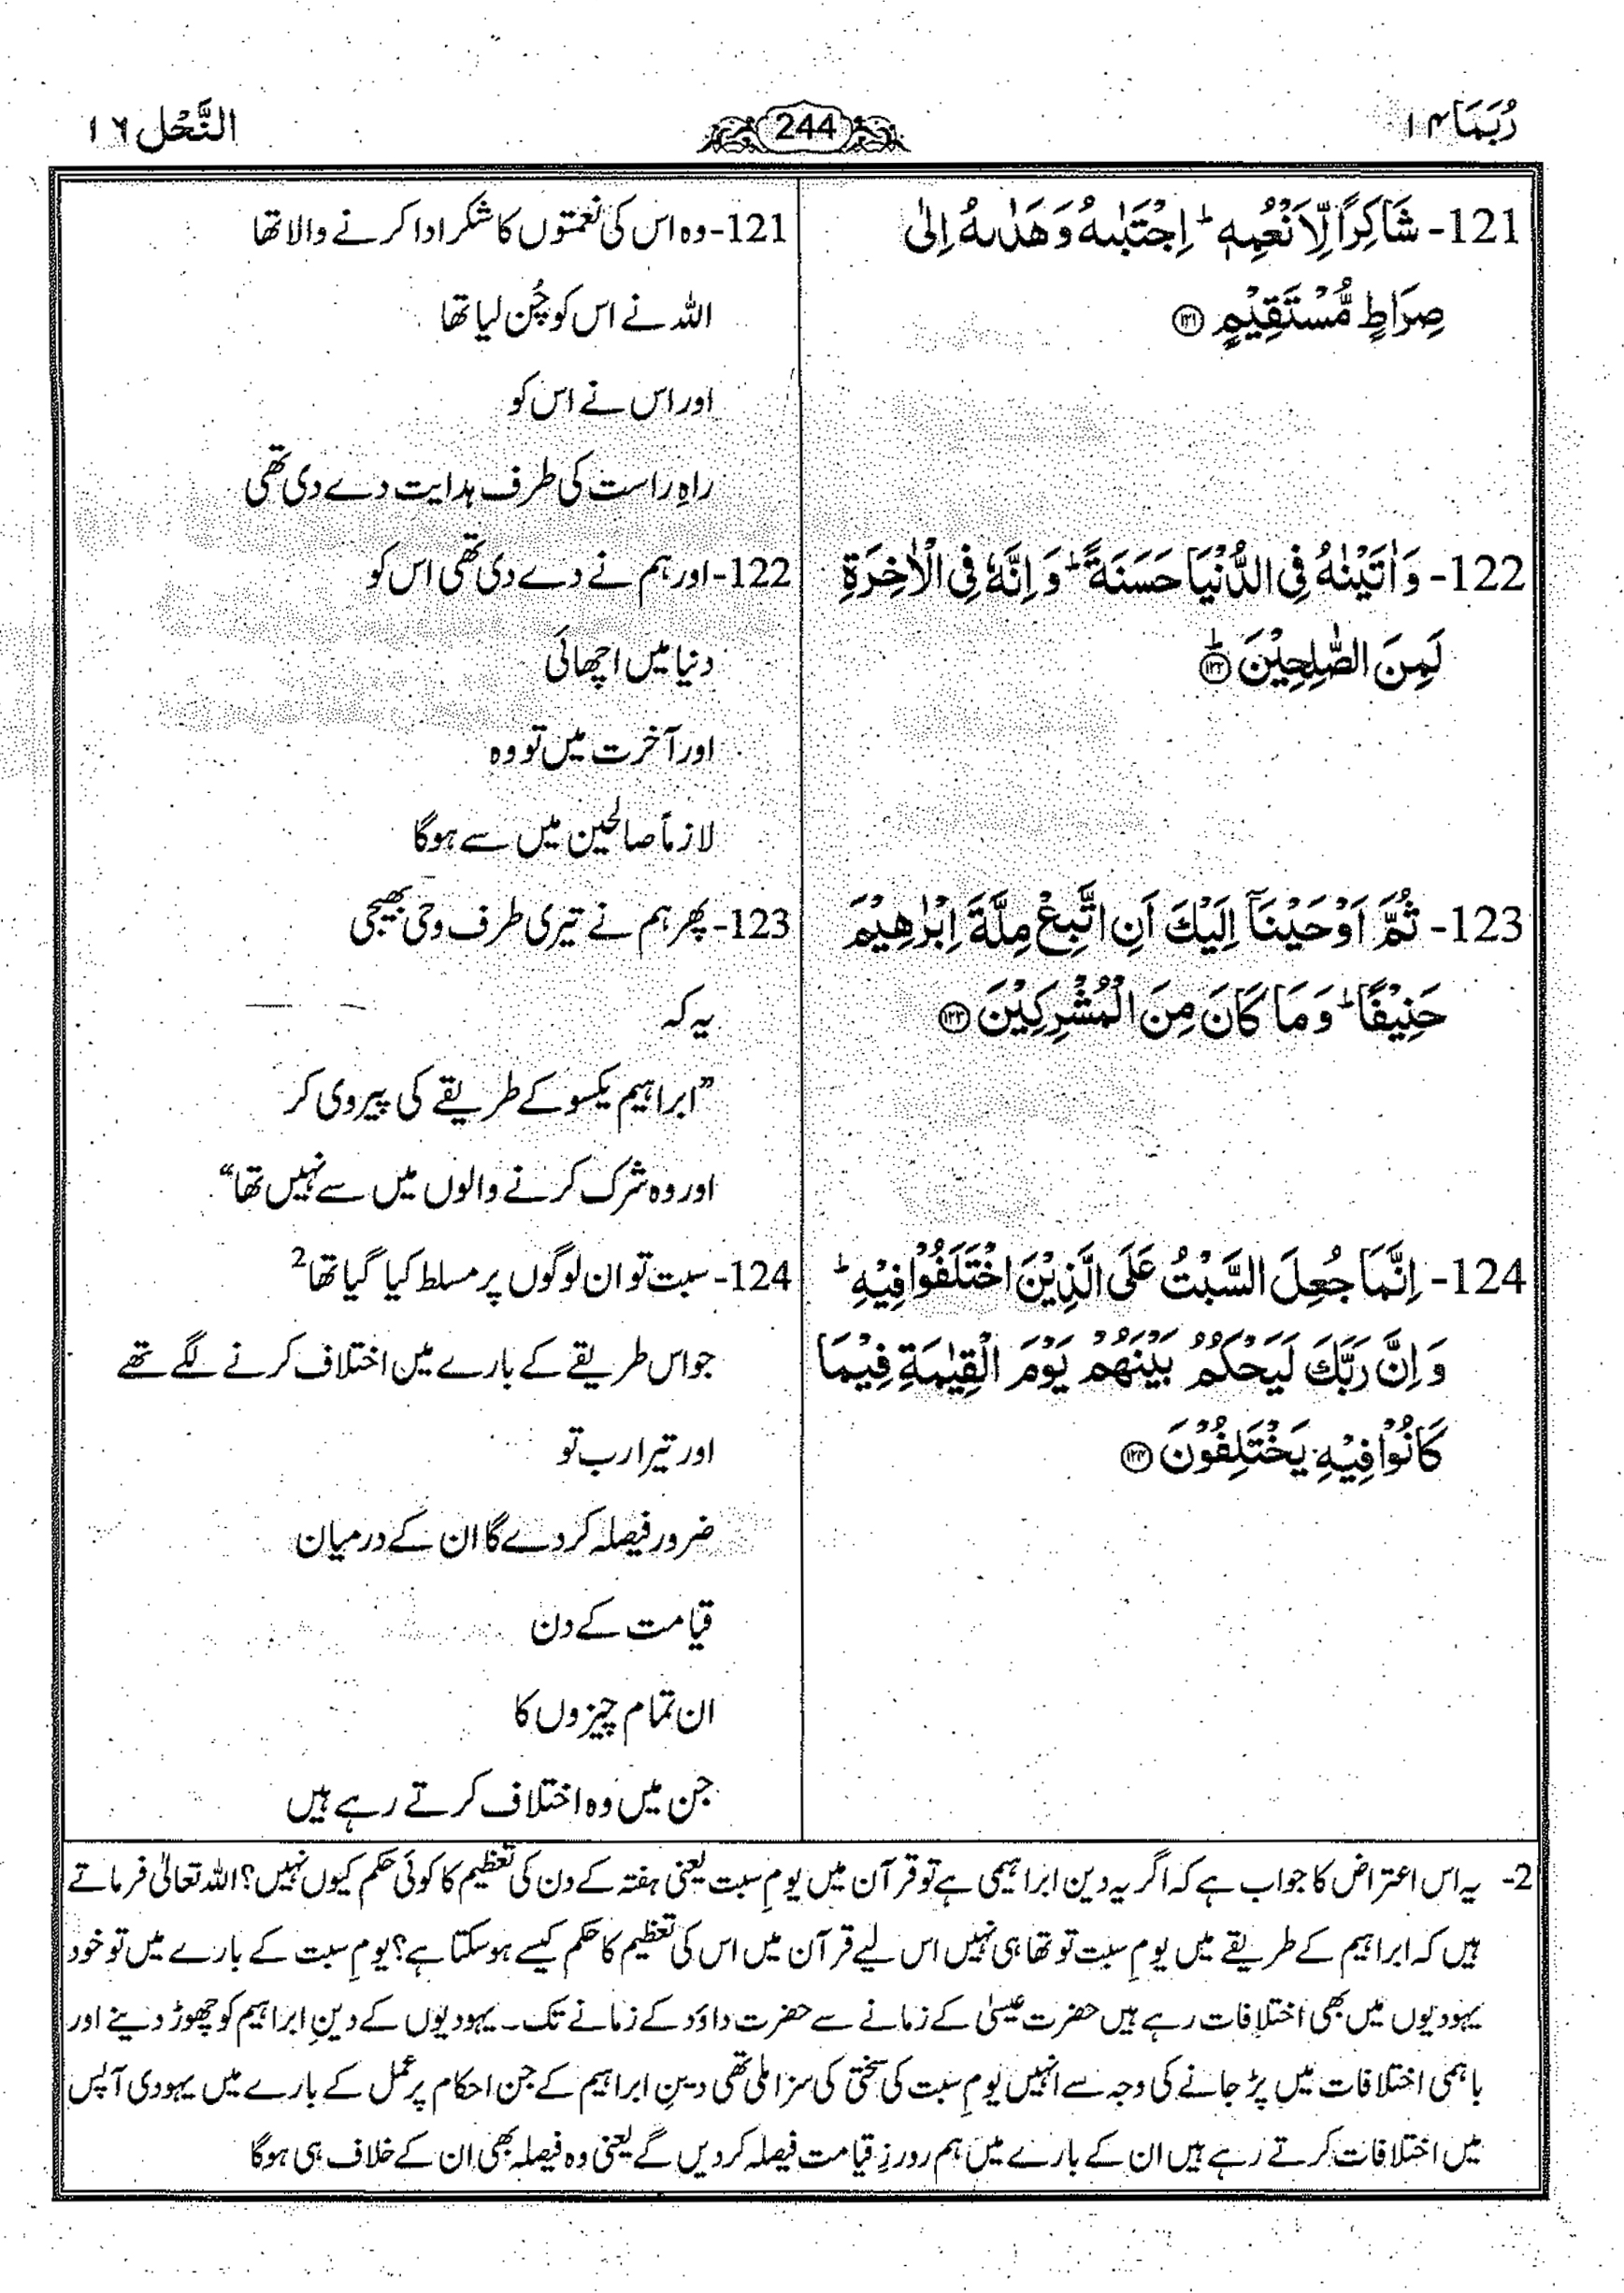 رُبَمَا ۱۴
244
النَّحْل ۱۶
121- شَاكِرًا لِّاَنْعُمِهٖ ؕ اِجْتَبٰىهُ وَ هَدٰىهُ اِلٰى
صِرَاطٍ مُّسْتَقِيْمٍ ۝۱۲۱
122- وَ اٰتَيْنٰهُ فِى الدُّنْيَا حَسَنَةً ؕ وَ اِنَّهٗ فِى الْاٰخِرَةِ
لَمِنَ الصّٰلِحِيْنَ ۝۱۲۲ؕ
123- ثُمَّ اَوْحَيْنَاۤ اِلَيْكَ اَنِ اتَّبِعْ مِلَّةَ اِبْرٰهِيْمَ
حَنِيْفًا ؕ وَ مَا كَانَ مِنَ الْمُشْرِكِيْنَ ۝۱۲۳
124- اِنَّمَا جُعِلَ السَّبْتُ عَلَى الَّذِيْنَ اخْتَلَفُوْا فِيْهِ ؕ
وَ اِنَّ رَبَّكَ لَيَحْكُمُ بَيْنَهُمْ يَوْمَ الْقِيٰمَةِ فِيْمَا
كَانُوْا فِيْهِ يَخْتَلِفُوْنَ ۝۱۲۴
121- وہ اس کی نعمتوں کا شکر ادا کرنے والا تھا
اللہ نے اس کو چُن لیا تھا
اور اس نے اس کو
راہِ راست کی طرف ہدایت دے دی تھی
122- اور ہم نے دے دی تھی اس کو
دنیا میں اچھائی
اور آخرت میں تو وہ
لازماً صالحین میں سے ہوگا
123- پھر ہم نے تیری طرف وحی بھیجی
یہ کہ
”ابراہیم یکسو کے طریقے کی پیروی کر
اور وہ شرک کرنے والوں میں سے نہیں تھا“
124- سبت تو ان لوگوں پر مسلط کیا گیا تھا2
جو اس طریقے کے بارے میں اختلاف کرنے لگے تھے
اور تیرا رب تو
ضرور فیصلہ کر دے گا ان کے درمیان
قیامت کے دن
ان تمام چیزوں کا
جن میں وہ اختلاف کرتے رہے ہیں
2- یہ اس اعتراض کا جواب ہے کہ اگر یہ دین ابراہیمی ہے تو قرآن میں یومِ سبت یعنی ہفتہ کے دن کی تعظیم کا کوئی حکم کیوں نہیں؟ اللہ تعالیٰ فرماتے
ہیں کہ ابراہیم کے طریقے میں یومِ سبت تو تھا ہی نہیں اس لیے قرآن میں اس کی تعظیم کا حکم کیسے ہوسکتا ہے؟ یومِ سبت کے بارے میں تو خود
یہودیوں میں بھی اختلافات رہے ہیں حضرت عیسیٰ کے زمانے سے حضرت داؤد کے زمانے تک۔ یہودیوں کے دینِ ابراہیم کو چھوڑ دینے اور
باہمی اختلافات میں پڑ جانے کی وجہ سے انہیں یومِ سبت کی سختی کی سزا ملی تھی دینِ ابراہیم کے جن احکام پر عمل کے بارے میں یہودی آپس
میں اختلافات کرتے رہے ہیں ان کے بارے میں ہم روزِ قیامت فیصلہ کر دیں گے یعنی وہ فیصلہ بھی ان کے خلاف ہی ہوگا